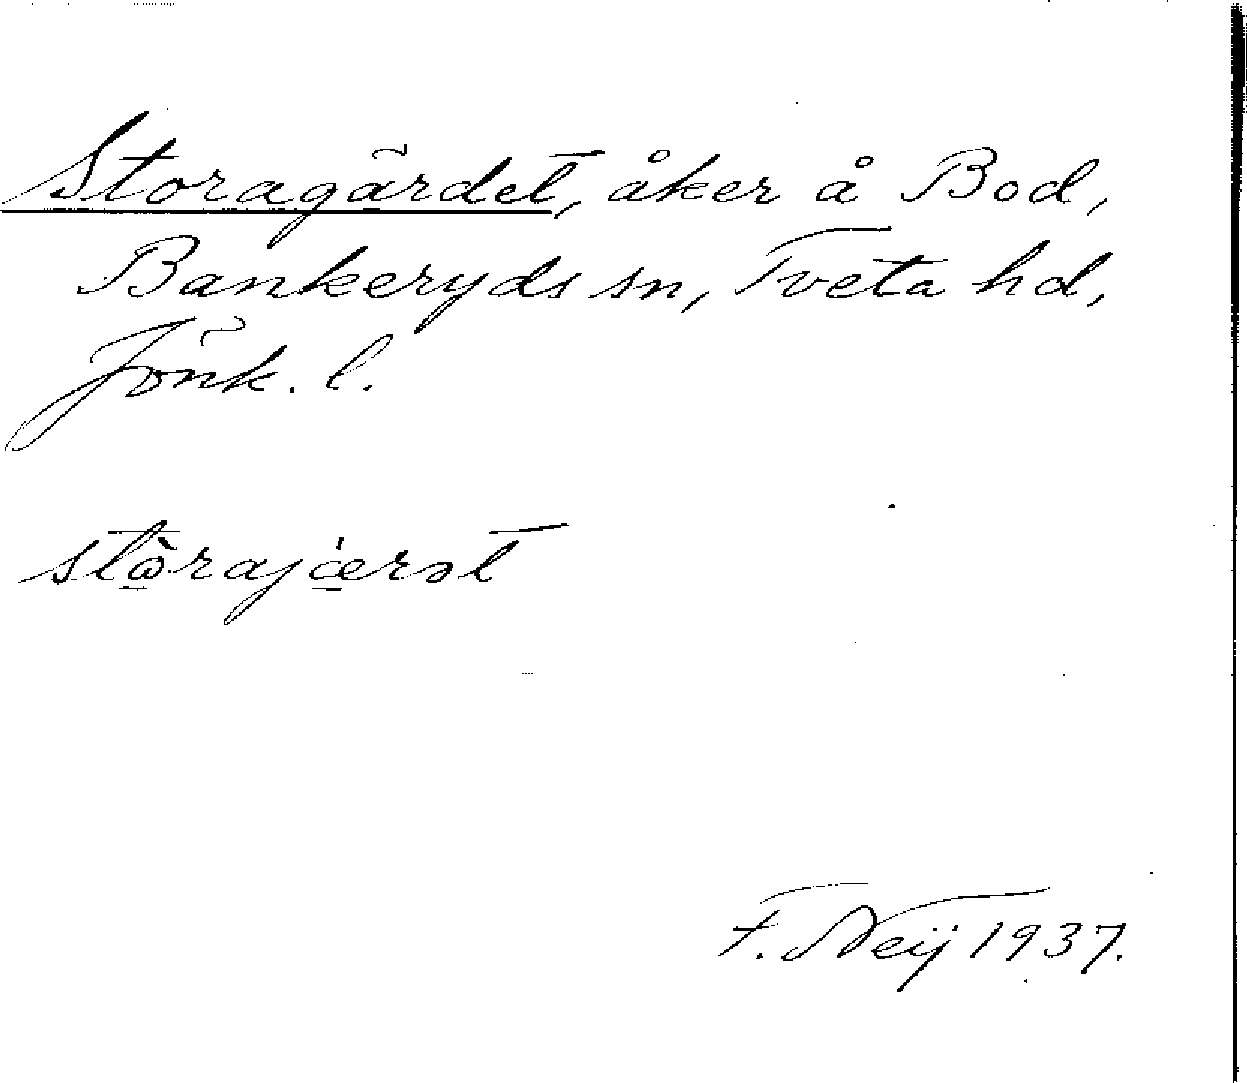 Storagärdet, åker å Bod,
Bankeryds sn, Tveta hd,
Jönk. l.
stὼ̲rajæ̲̍rət
F. Neij 1937.